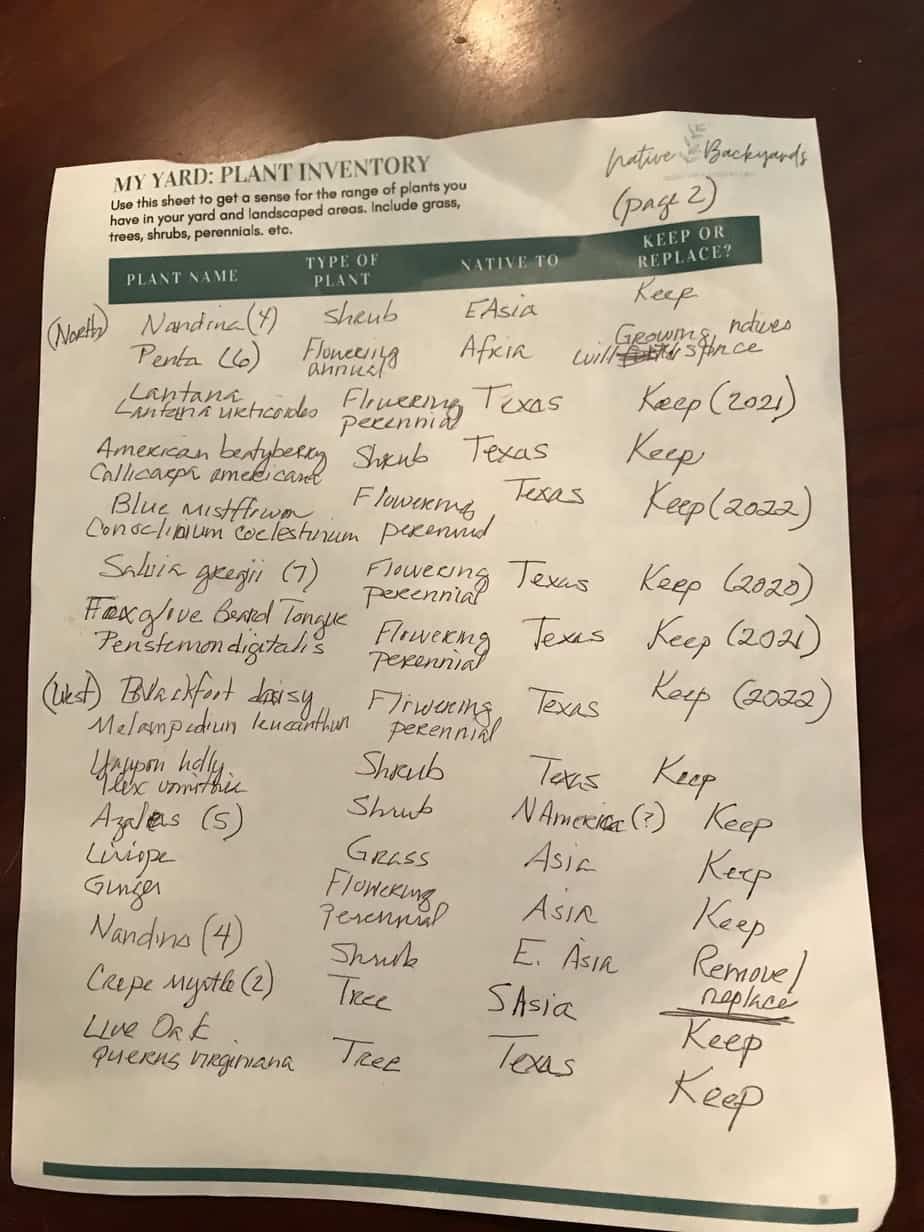 MY YARD: PLANT INVENTORY
Native Backyards
Use this sheet to get a sense for the range of plants you
have in your yard and landscaped areas. Include grass,
trees, shrubs, perennials. etc.
(page 2)
PLANT NAME TYPE OF PLANT NATIVE TO KEEP OR REPLACE?
(North) Nandina (4) Shrub E Asia Keep
Penta (6) Flowering annual Africa Growing natives will space
Lantana Flowering Texas Keep (2021)
Lantana urticoides perennial
American beatyberry Shrub Texas Keep
Callicarpa americana
Blue Mistflower Flowering Texas Keep (2022)
Conoclinium coelestinum perennial
Salvia greggii (7) Flowering perennial Texas Keep (2020)
Foxglove Beard Tongue
Penstemon digitalis Flowering perennial Texas Keep (2021)
(West) Blackfoot daisy Flowering Texas Keep (2022)
Melampodium leucanthum perennial
Yaupon holly Shrub Texas Keep
Ilex vomitoric
Azaleas (5) Shrub N America (?) Keep
Liriope Grass Asia Keep
Ginger Flowering perennial Asia Keep
Nandina (4) Shrub E. Asia Remove/ replace
Crepe Myrtle (2) Tree S Asia Keep
Live Oak
Querns virginiana Tree Texas Keep